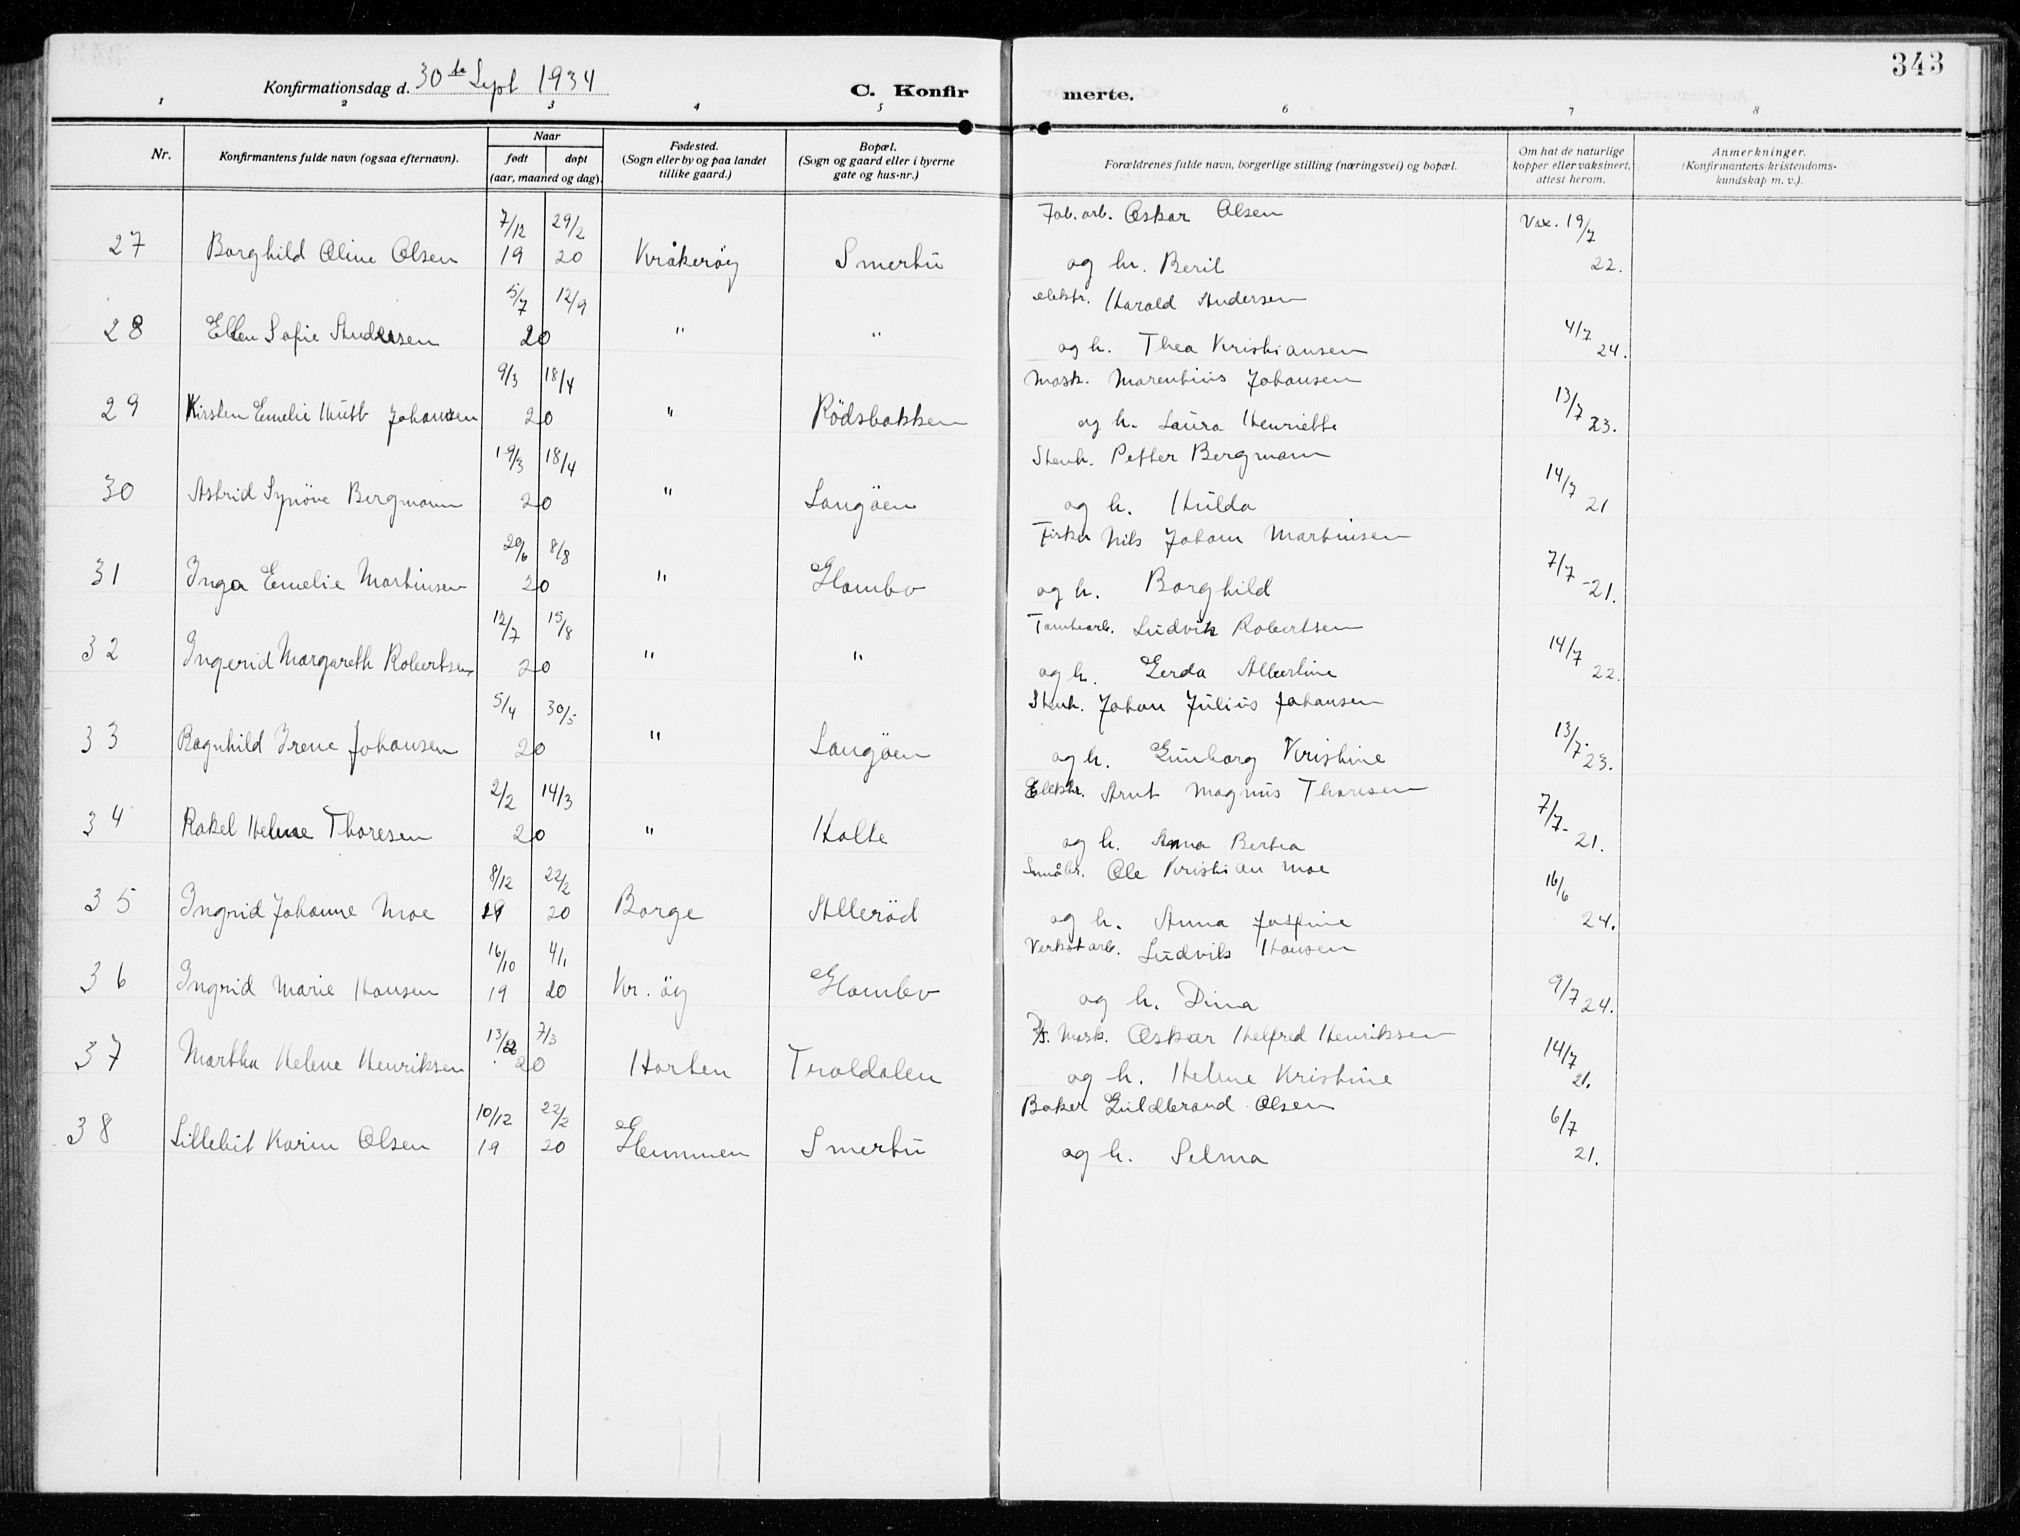 343
Konfirmationsdag d. 30te Sept 1934
C. Konfirmerte.
1 2 3 4 5 6 7 8
Nr. Konfirmantens fulde navn (ogsaa efternavn). Naar født døpt (aar, maaned og dag). Fødested. (Sogn eller by og paa landet tillike gaard.) Bopæl. (Sogn og gaard eller i byerne gate og hus-nr.) Forældrenes fulde navn, borgerlige stilling (næringsvei) og bopæl. Om hat de naturlige kopper eller vaksinert, attest herom. Anmerkninger. (Konfirmantens kristendomskundskap m. v.).
7/12 29/2 Fab. arb. Oskar Olsen Vax. 19/7
27 Borghild Oline Olsen 19 20 Kråkerøy Smertu og h. Beril 22.
5/7 12/9 elektr. Harald Andersen
28 Ellen Sofie Andersen 20 " " og h. Thea Kristiansen 4/7 24.
9/3 18/4 Mask. Marentius Johansen
29 Kirsten Emelie Hutb Johansen 20 " Rödsbakken og h. Laura Henriette 13/7 23.
19/3 18/4 Stenh. Petter Bergmann
30 Astrid Synöve Bergmann 20 " Langöen og h. Hulda 14/7 21
20/6 8/8 Fisker Nils Johan Martinsen
31 Inga Emelie Martinsen 20 " Glombo og h. Borghild 7/7 - 21.
12/7 15/8 Tomtearb. Ludvik Robertsen
32 Ingerid Margareth Robertsen 20 " " og h. Gerda Albertine 14/7 22.
5/4 30/5 Stenh. Johan Julius Johansen
33 Ragnhild Irene Johansen 20 " Langöen og h. Gunborg Kristine 13/7. 23.
2/2 14/3 Elektr. Arnt Magnus Thoresen
34 Rakel Helene Thoresen 20 " Holte og h. Anna Bertea 7/7- 21.
8/12 22/2 Småbr. Ole Kristian Moe
35 Ingrid Johanne Moe 19 20 Borge Alleröd og h. Anna Josfine 16/6 24.
16/10 4/1 Verkstarb. Ludvik Hansen
36 Ingrid Marie Hansen 19 20 Kr. öy Glombo og h. Dina 9/7 24.
13/2 7/3 Mask. Oskar Helfred Henriksen
37 Martha Helene Henriksen 20 Horten Troldalen og h. Helene Kristine 14/7 21.
10/12 22/2 Baker Guldbrand Olsen
38 Lillebit Karin Olsen 19 20 Glemmen Smertu og h. Selma 6/7 21.